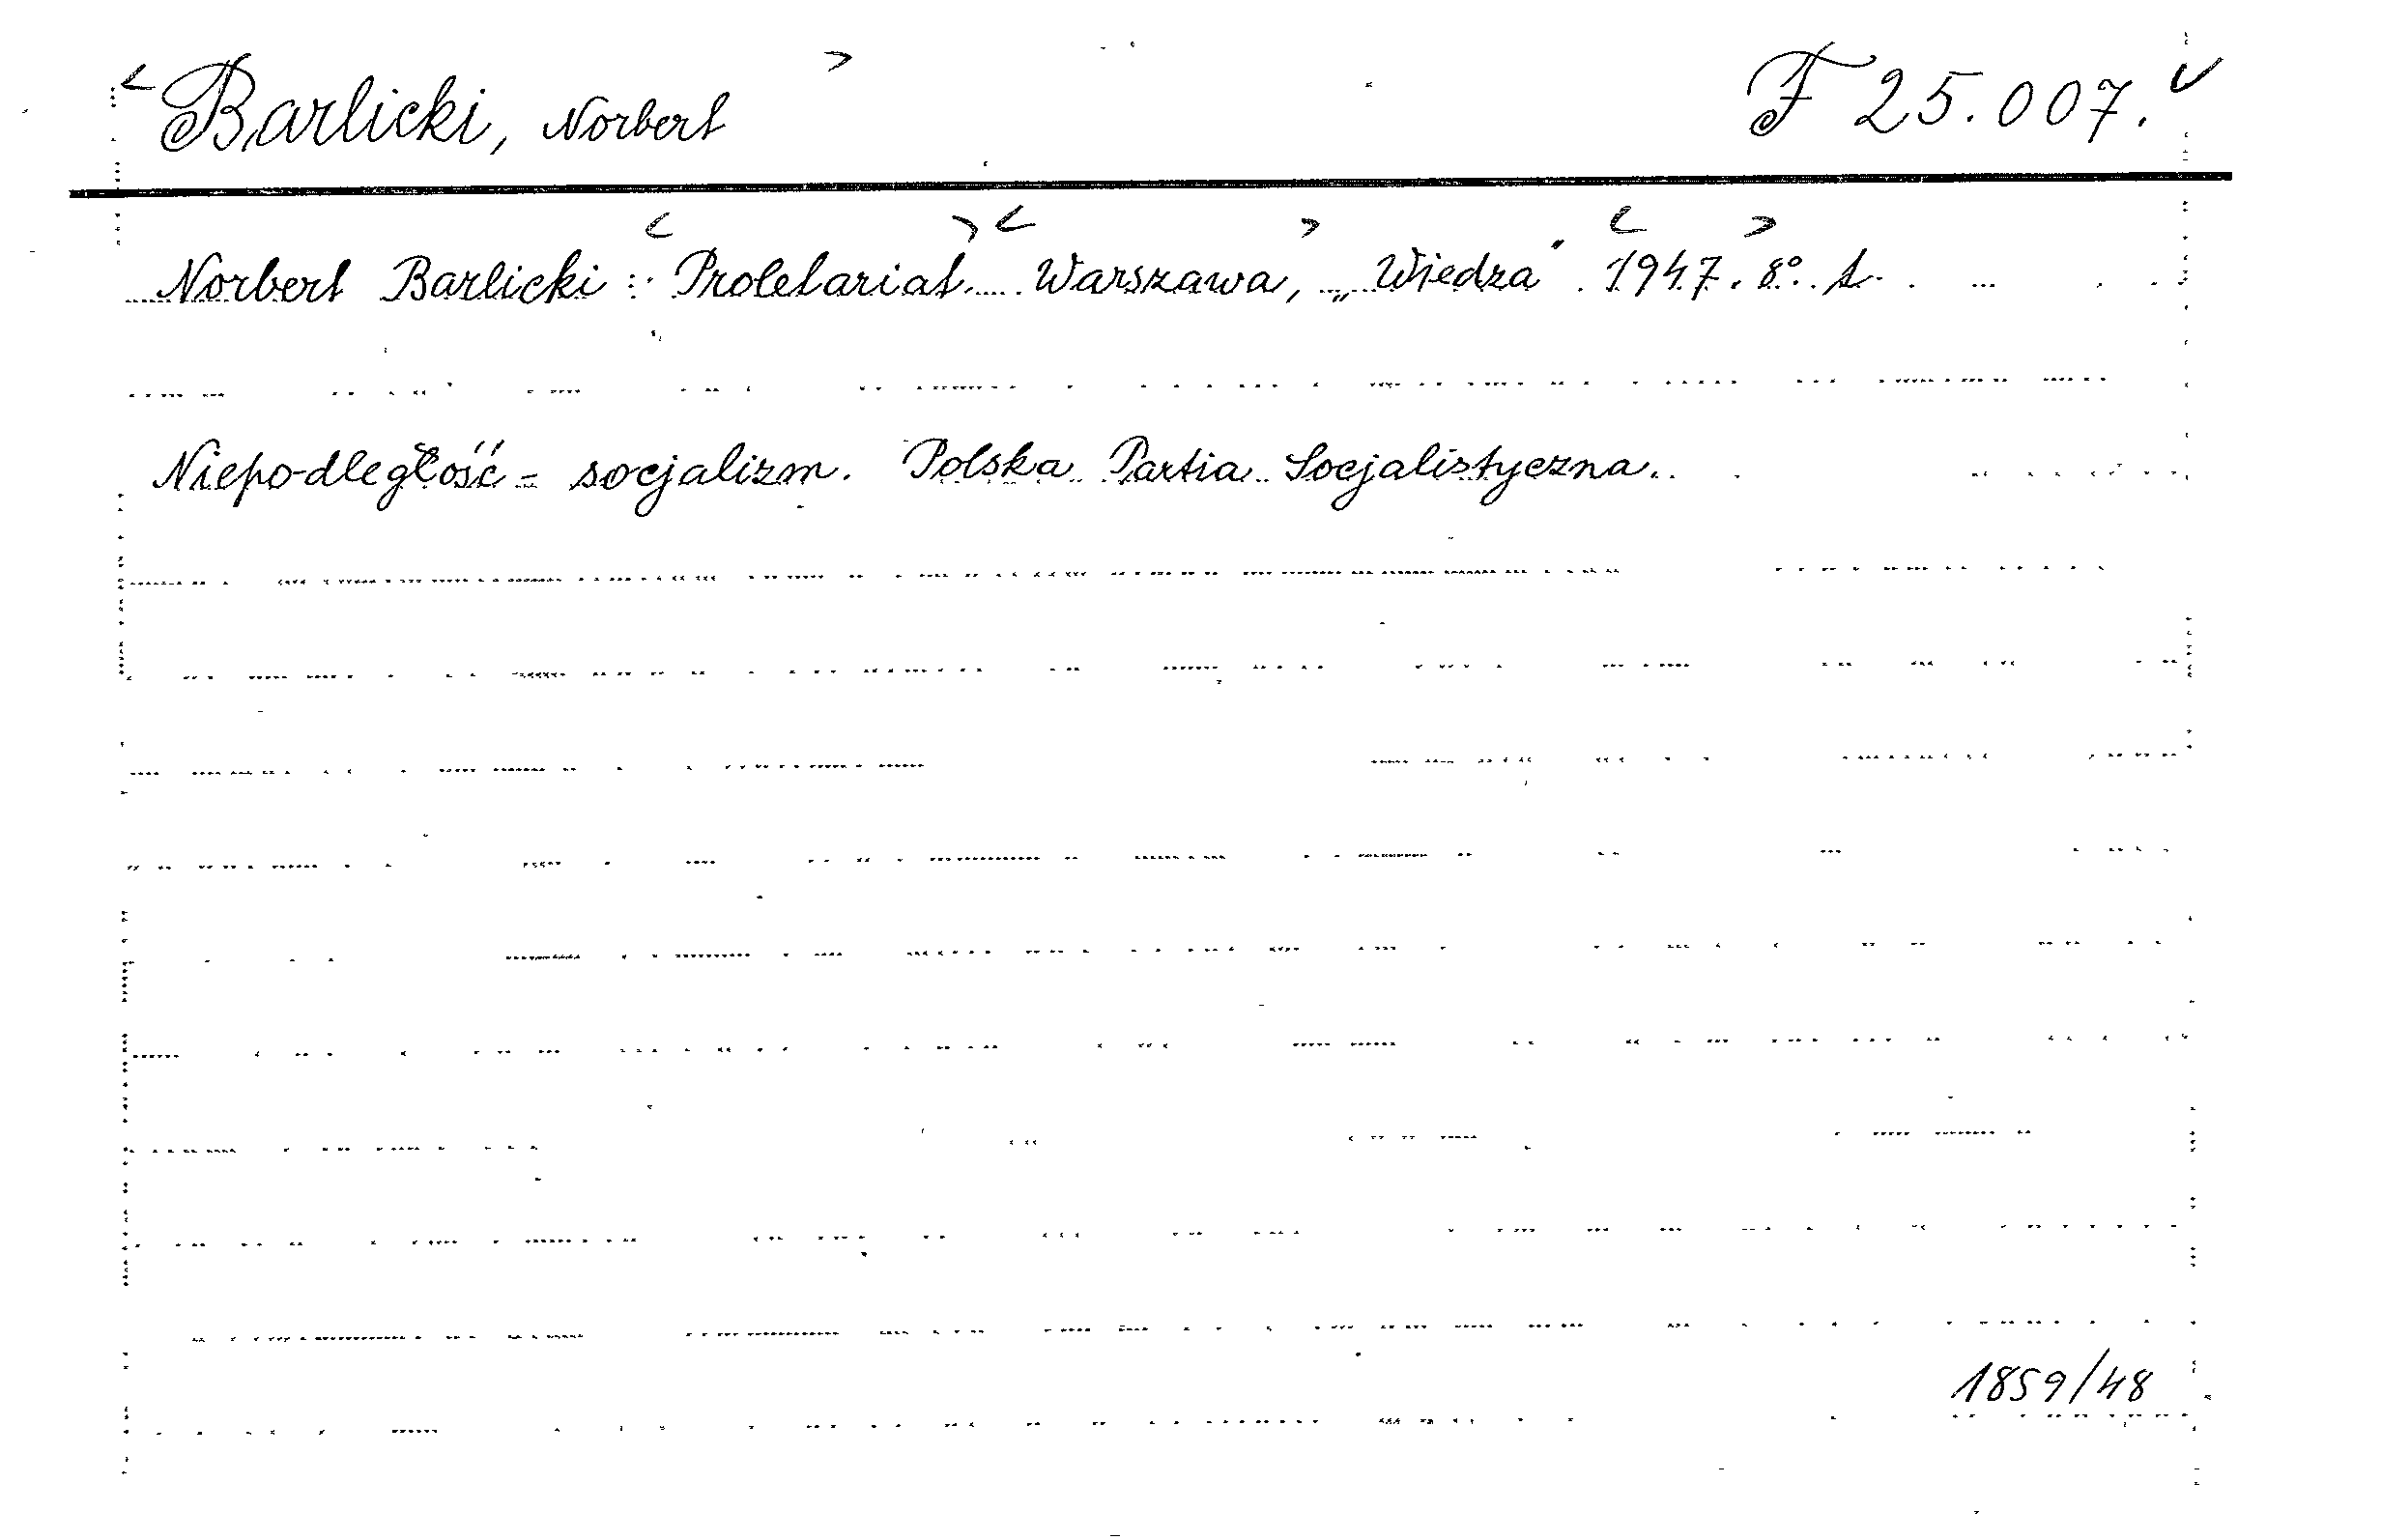 Barlicki, Norbert F 25.007.
Norbert Barlicki: Proletariat. Warszawa, „Wiedza" 1947. 8°.
Niepodległość = socjalizm. Polska Partia Socjalistyczna.
1859/48